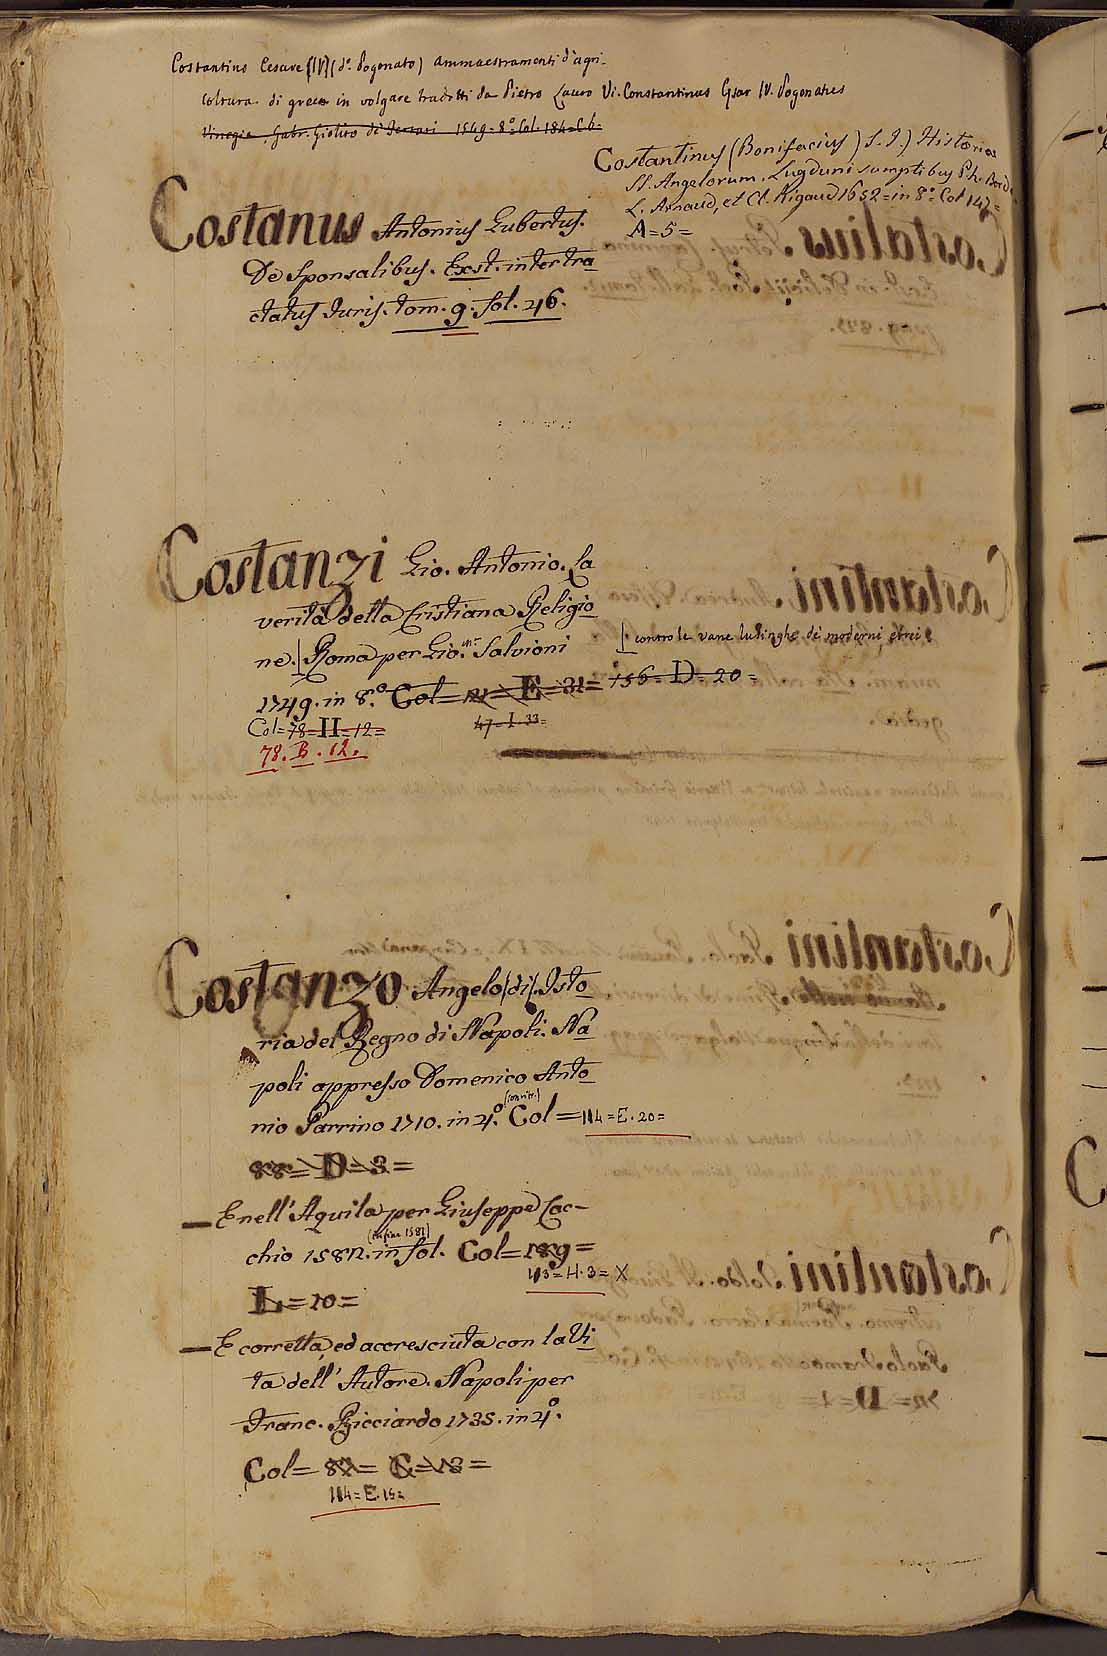 Costantino Cesare (IV) (d.º Pogonato) Ammaestramenti d'agri-
coltura di greco in volgare tradotti da Pietro Lauro Vi. Constantinus Cæsar IV. Pogonatus
Vinegia, Gabr. Giolito de' Ferrari 1549=8º=Col. 184=C.6.
Costantinus (Bonifacius) S.I.) Historiæ
SS. Angelorum. Lugduni sumptibus Ph. Bord.
L. Arnaud, et Cl. Rigaud 1652=in 8º=Col 147=
A=5=
Costanus Antonius Gubertus.
De Sponsalibus. Exst. inter tra
ctatus Juris. tom. 9. fol. 46.
Costanzi Gio. Antonio. La
verità della Cristiana Religio
ne. | Roma per Gio. Salvioni
| contro le vane lusinghe de' moderni ebrei
1749. in 8.º Col = E=31= 156=D=20=
Col=78=H=12= 47=I.33=
78. B. 12.
Costanzo Angelo (di). Isto
ria del Regno di Napoli. Na
poli appresso Domenico Anto
nio Parrino 1710. in 4.º Col=114=E.20=
88=D=3=
— E nell'Aquila per Giuseppe Cac-
(in fine 1581)
chio 1582. in fol. Col=189=
113=H.3=X
L=10=
— E corretta, ed accresciuta con la Vi
ta dell'Autore. Napoli per
Franc. Ricciardo 1735. in 4º.
Col= 87= C=13=
114=E.15=